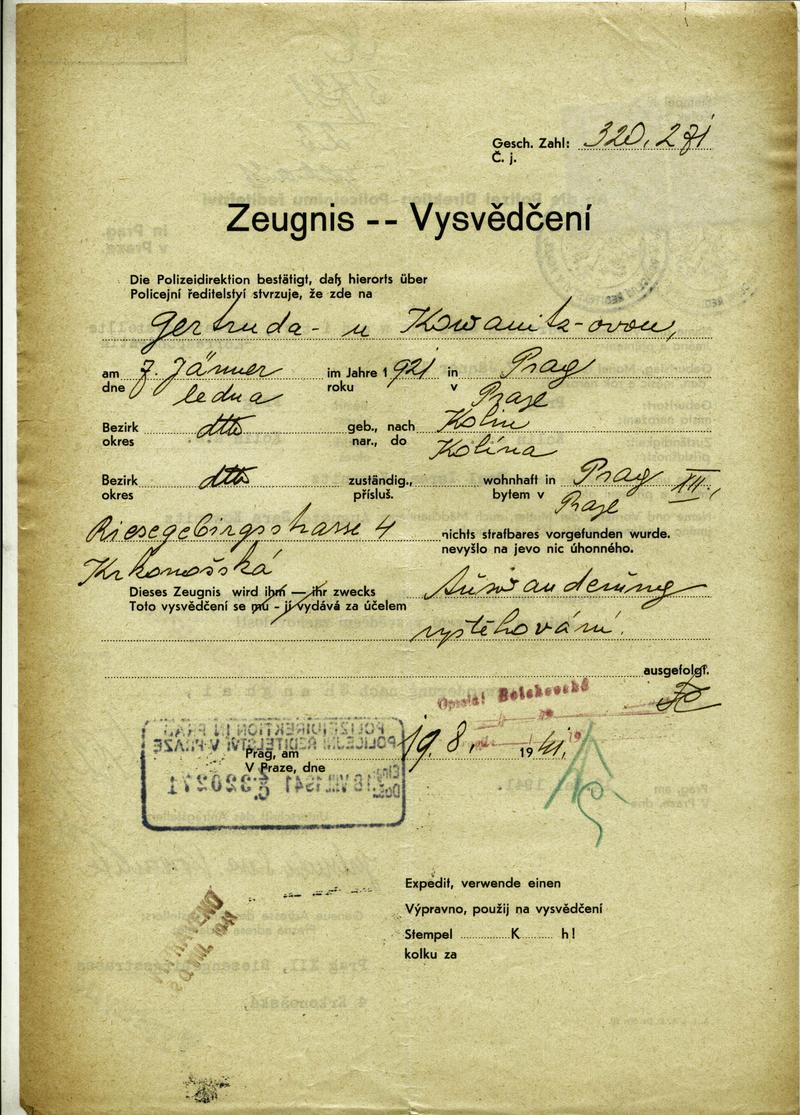 Gesch. Zahl: 320,271
Č. j.
Zeugnis -- Vysvědčení
Die Polizeidirektion bestätigt, daß hierorts über
Policejní ředitelství stvrzuje, že zde na
Gertruda- u Kowanitz-ovou,
am 7. Jänner im Jahre 1921 in Prag
dne ledna roku v Praze
Bezirk dtto geb., nach Kolin
okres nar., do Kolína
Bezirk dtto zuständig., wohnhaft in Prag XII,
okres přísluš. bytem v Praze
Riesegebirgsstrasse 4 nichts strafbares vorgefunden wurde.
nevyšlo na jevo nic úhonného.
Krkonošská
Dieses Zeugnis wird ihm — ihr zwecks Auswanderung
Toto vysvědčení se mu - jí vydává za účelem
vystěhování.
ausgefolgt.
Opsala: Bolehovská
Prag, am 19. 8. 1941.
V Praze, dne
POLIZEIDIREKTION IN PRAG
POLICEJNÍ ŘEDITELSTVÍ V PRAZE
Eing. 18. VIII. 1941 320271
Došlo
Expedit, verwende einen
Výpravno, použij na vysvědčení
Stempel K h!
kolku za